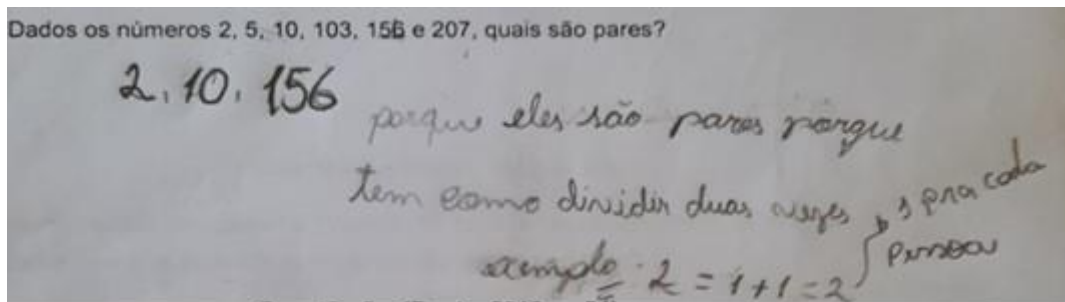 Dados os números 2, 5, 10, 103, 156 e 207, quais são pares?
2, 10, 156
porque eles são pares porque
tem como dividir duas vezes, 1 pra cada
pessoa
exemplo: 2 = 1+1=2